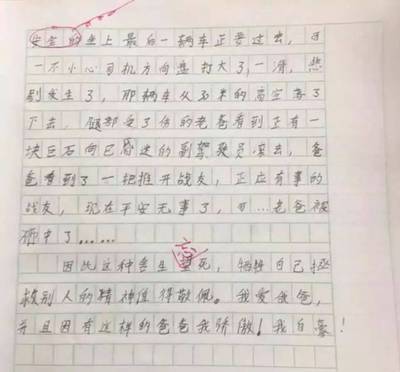 安全的坐上最后一辆车正要过去，可
一不小心司机方向盘打大了，一滑，悲
剧发生了，那辆车从30米的高空落了
下去，腿部受了伤的老爸看到正有一
块巨石向已昏迷的副驾驶员滚去，爸
爸看到了一把推开战友，正应有事的
战友，现在平安无事了，可…老爸被
砸中了……
忘
因此这种舍生望死，牺牲自己拯
救别人的精神值得敬佩。我爱我爸，
并且因有这样的爸爸我骄傲！我自豪！